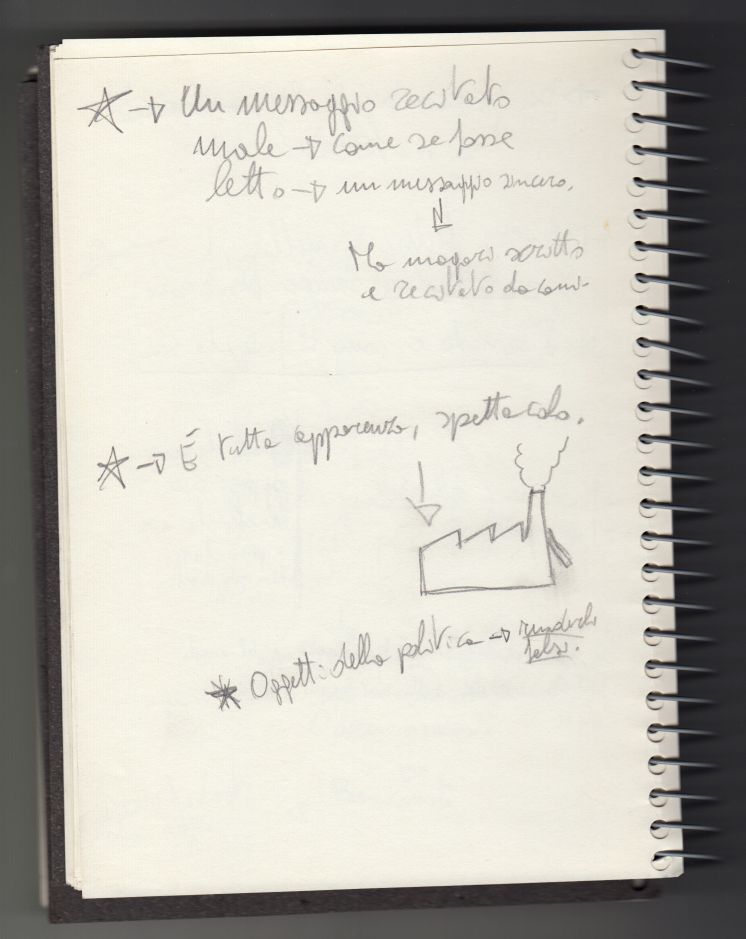 Un messaggio recitato
male → come se fosse
letto → un messaggio sincero.
Ma magari scritto
e recitato da cani.
È tutta apparenza, spettacolo.
Oggetti della politica → renderli
falsi.